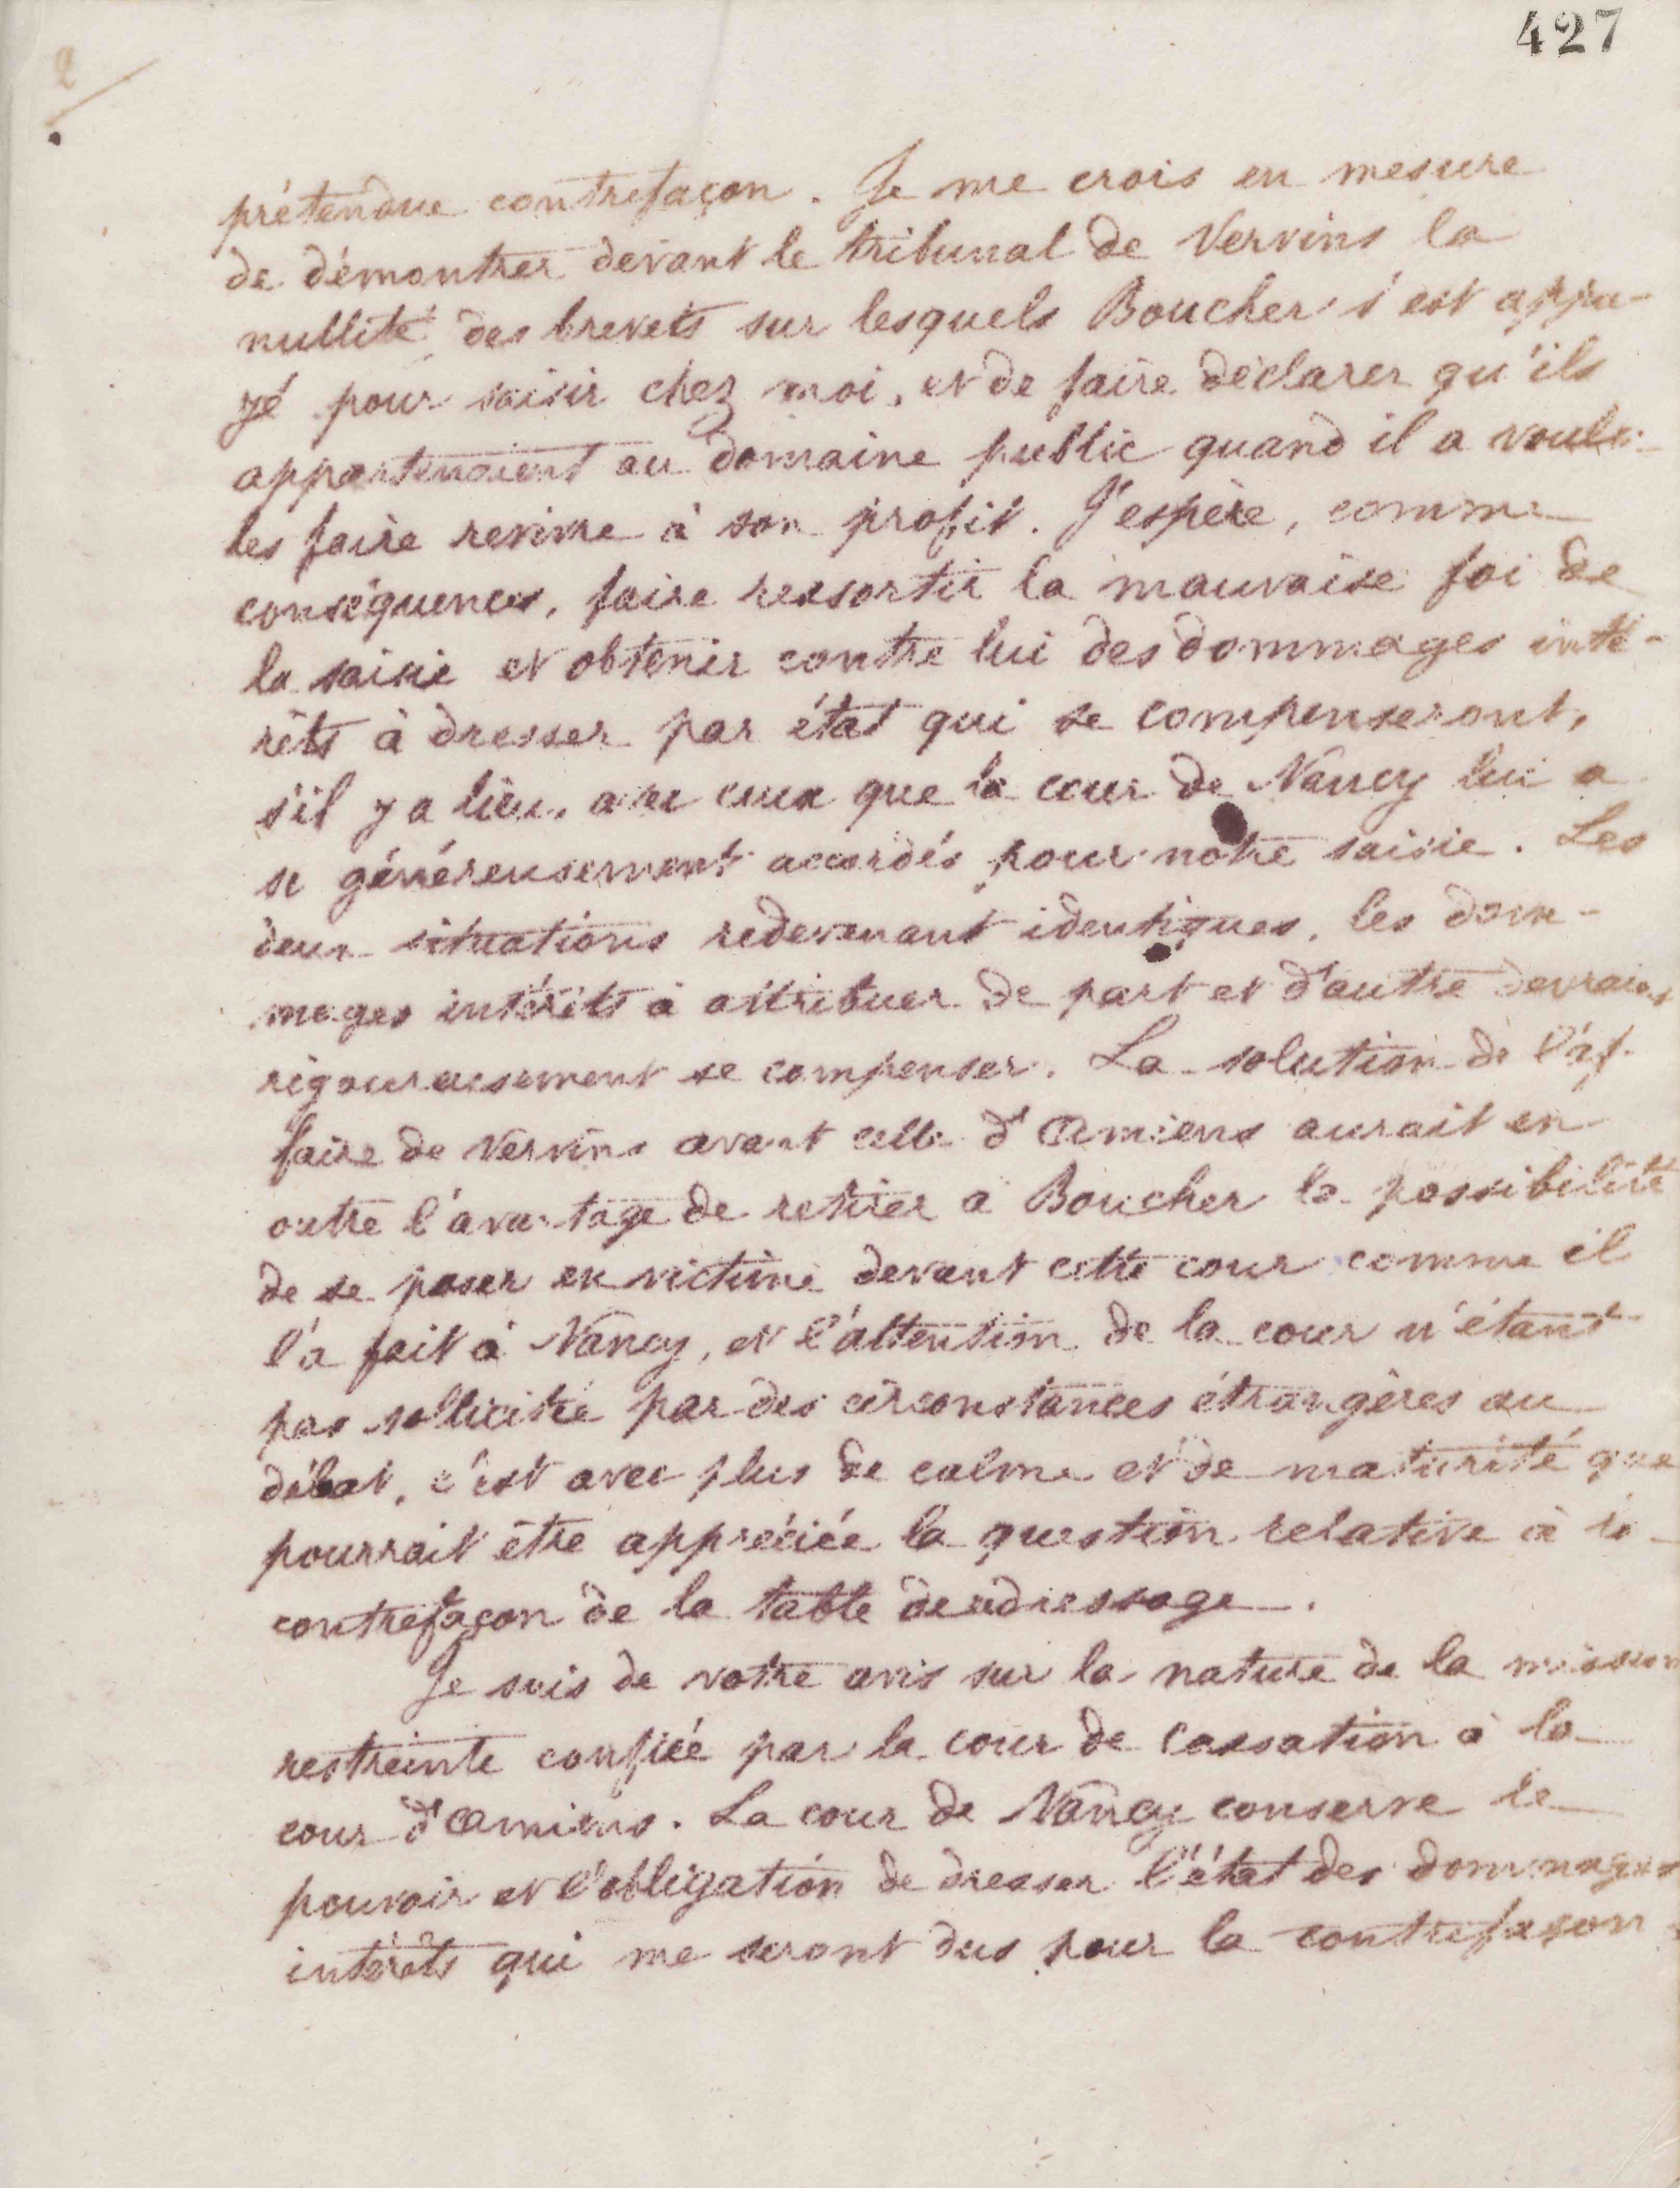 427
2
prétendue contrefaçon. Je me crois en mesure
de démontrer devant le tribunal de Vervins la
nullité des brevets sur lesquels Boucher s'est appu-
yé pour saisir chez moi, et de faire déclarer qu'ils
appartenaient au domaine public quand il a voulu
les faire revivre à son profit. J'espère, comme
conséquences, faire ressortir la mauvaise foi de
la saisie et obtenir contre lui des dommages inté-
rêts à dresser par état qui se compenseront,
s'il y a lieu, avec ceux que la cour de Nancy lui a
si généreusement accordés pour notre saisie. Les
deux situations redevenant identiques, les dom-
mages intérêts à attribuer de part et d'autre devraient
rigoureusement se compenser. La solution de l'af-
faire de Vervins avant celle d'Amiens aurait en
outre l'avantage de retirer à Boucher la possibilité
de se poser en victime devant cette cour comme il
l'a fait à Nancy, et l'attention de la cour n'étant
pas sollicitée par des circonstances étrangères au
débat, c'est avec plus de calme et de maturité que
pourrait être appréciée la question relative à la
contrefaçon de la table de dressage.
Je suis de votre avis sur la nature de la mission
restreinte confiée par la cour de Cassation à la
cour d'Amiens. La cour de Nancy conserve le
pouvoir et l'obligation de dresser l'état des dommages
intérêts qui me seront dus pour la contrefaçon